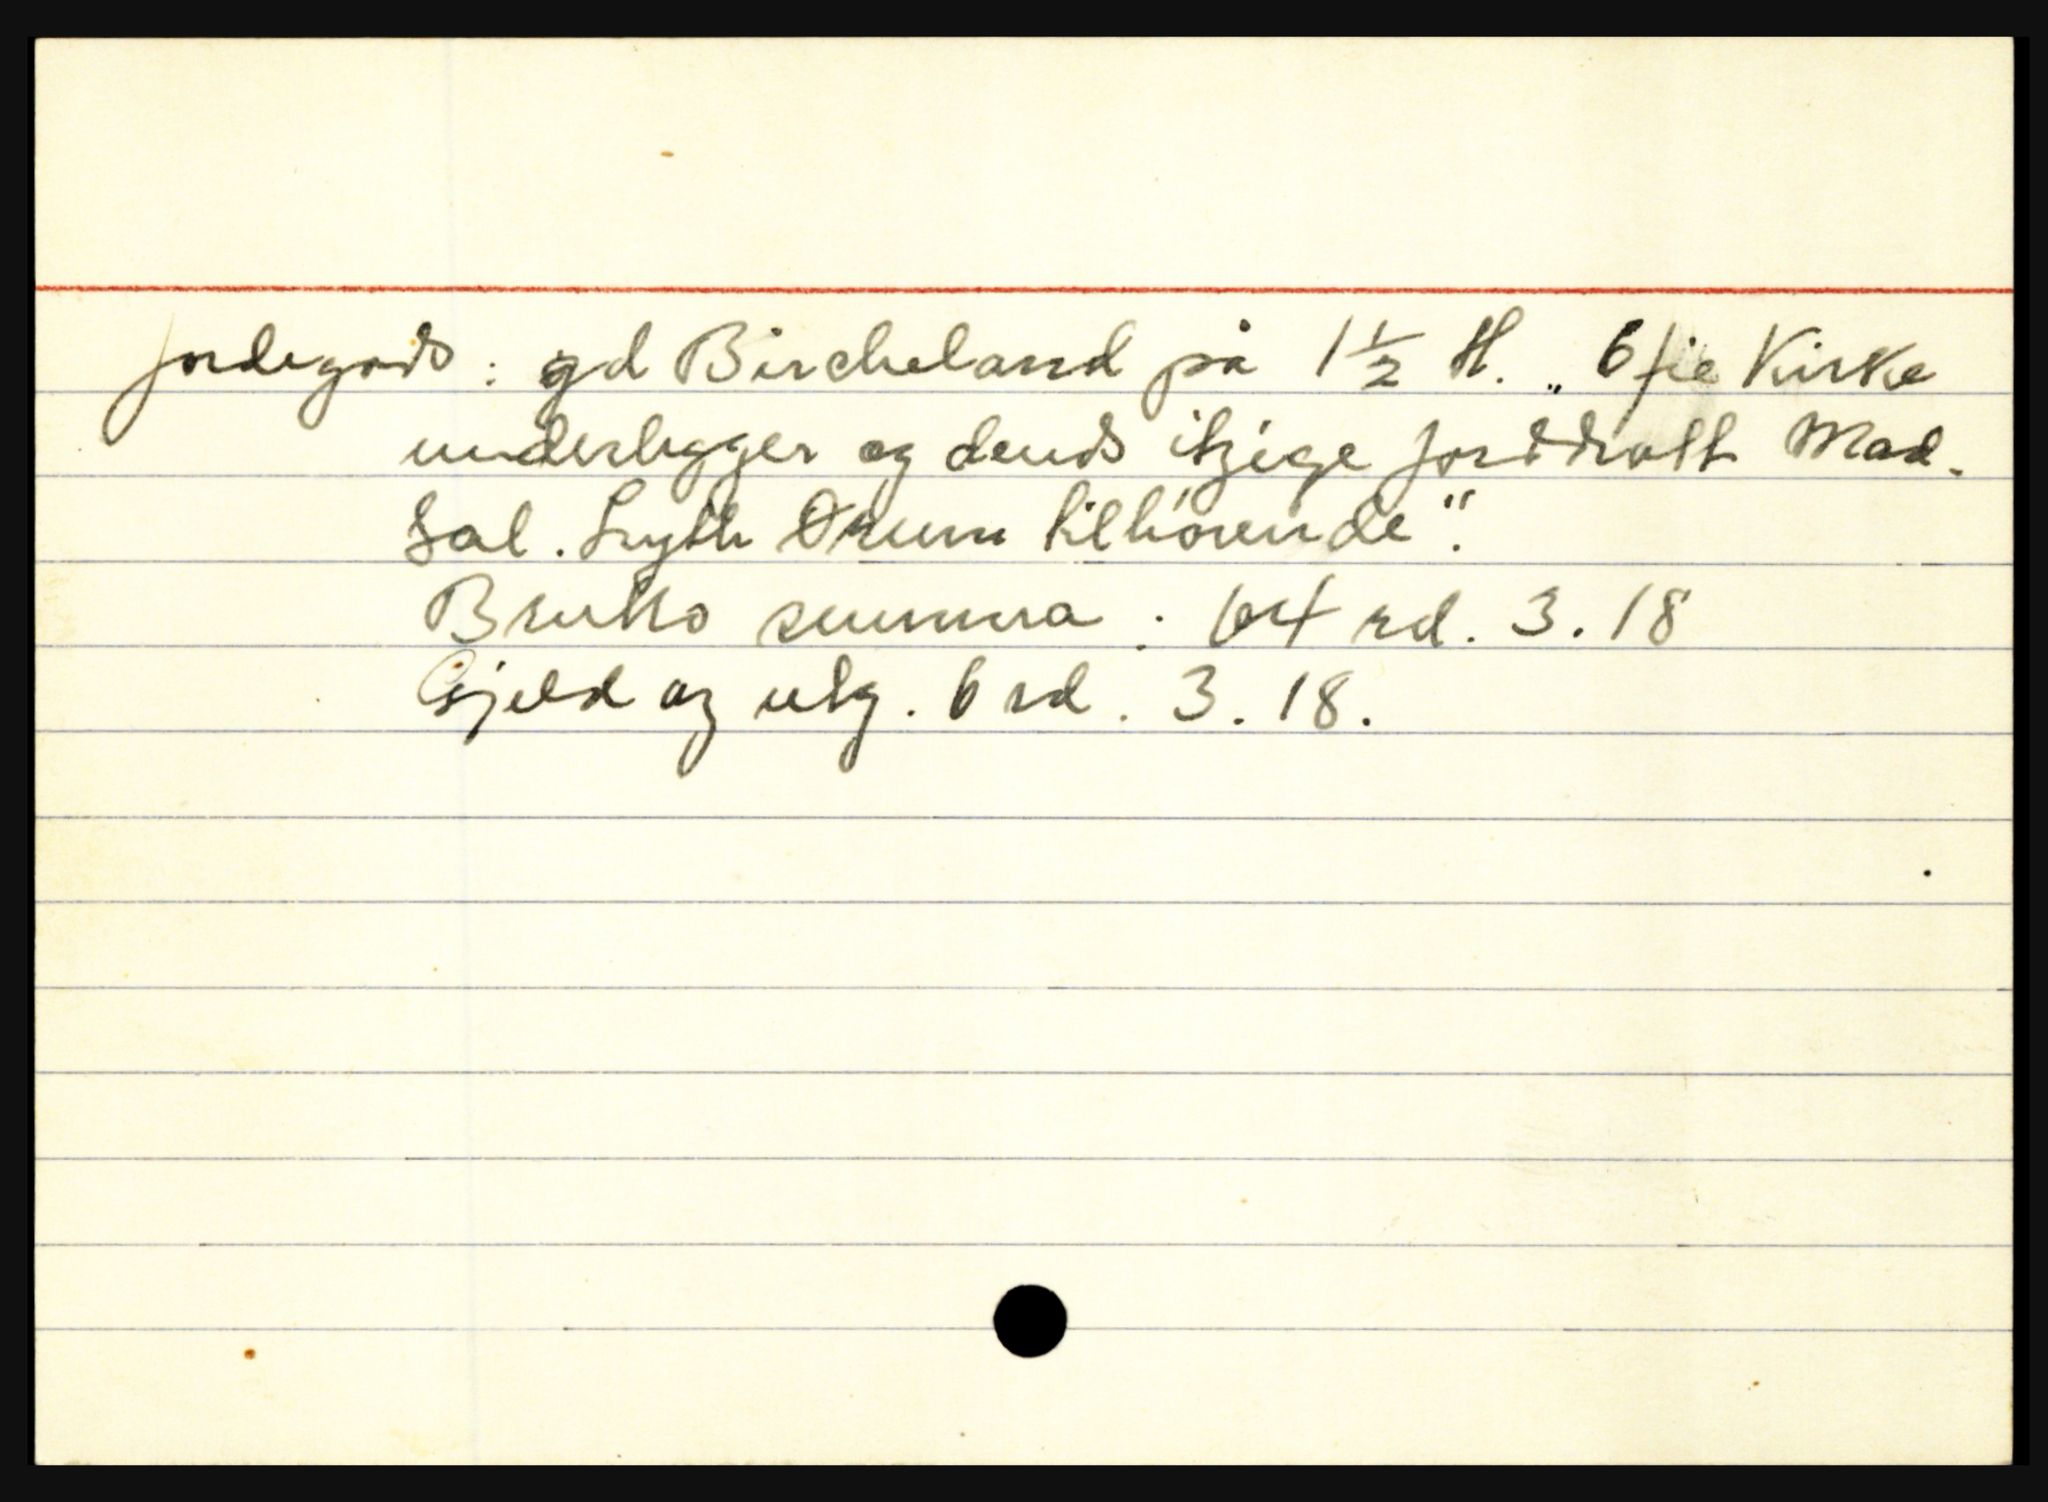 jordegods : gd Bircheland på 1 1/2 H. „ 6 fie Kirke
underligger og dends itzige jorddrott Mad.
Sal. Lyth Drum tilhörende“.
Brutto summa : 64 rd. 3. 18
Gjeld og utg. 6 rd. 3. 18.